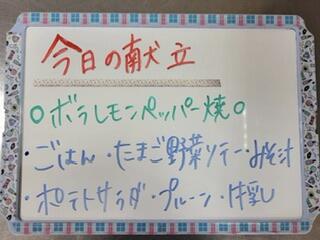 今日の献立
○ボラレモンペッパー焼○
・ごはん・たまご野菜ソテー・みそ汁
・ポテトサラダ・プルーン・牛乳